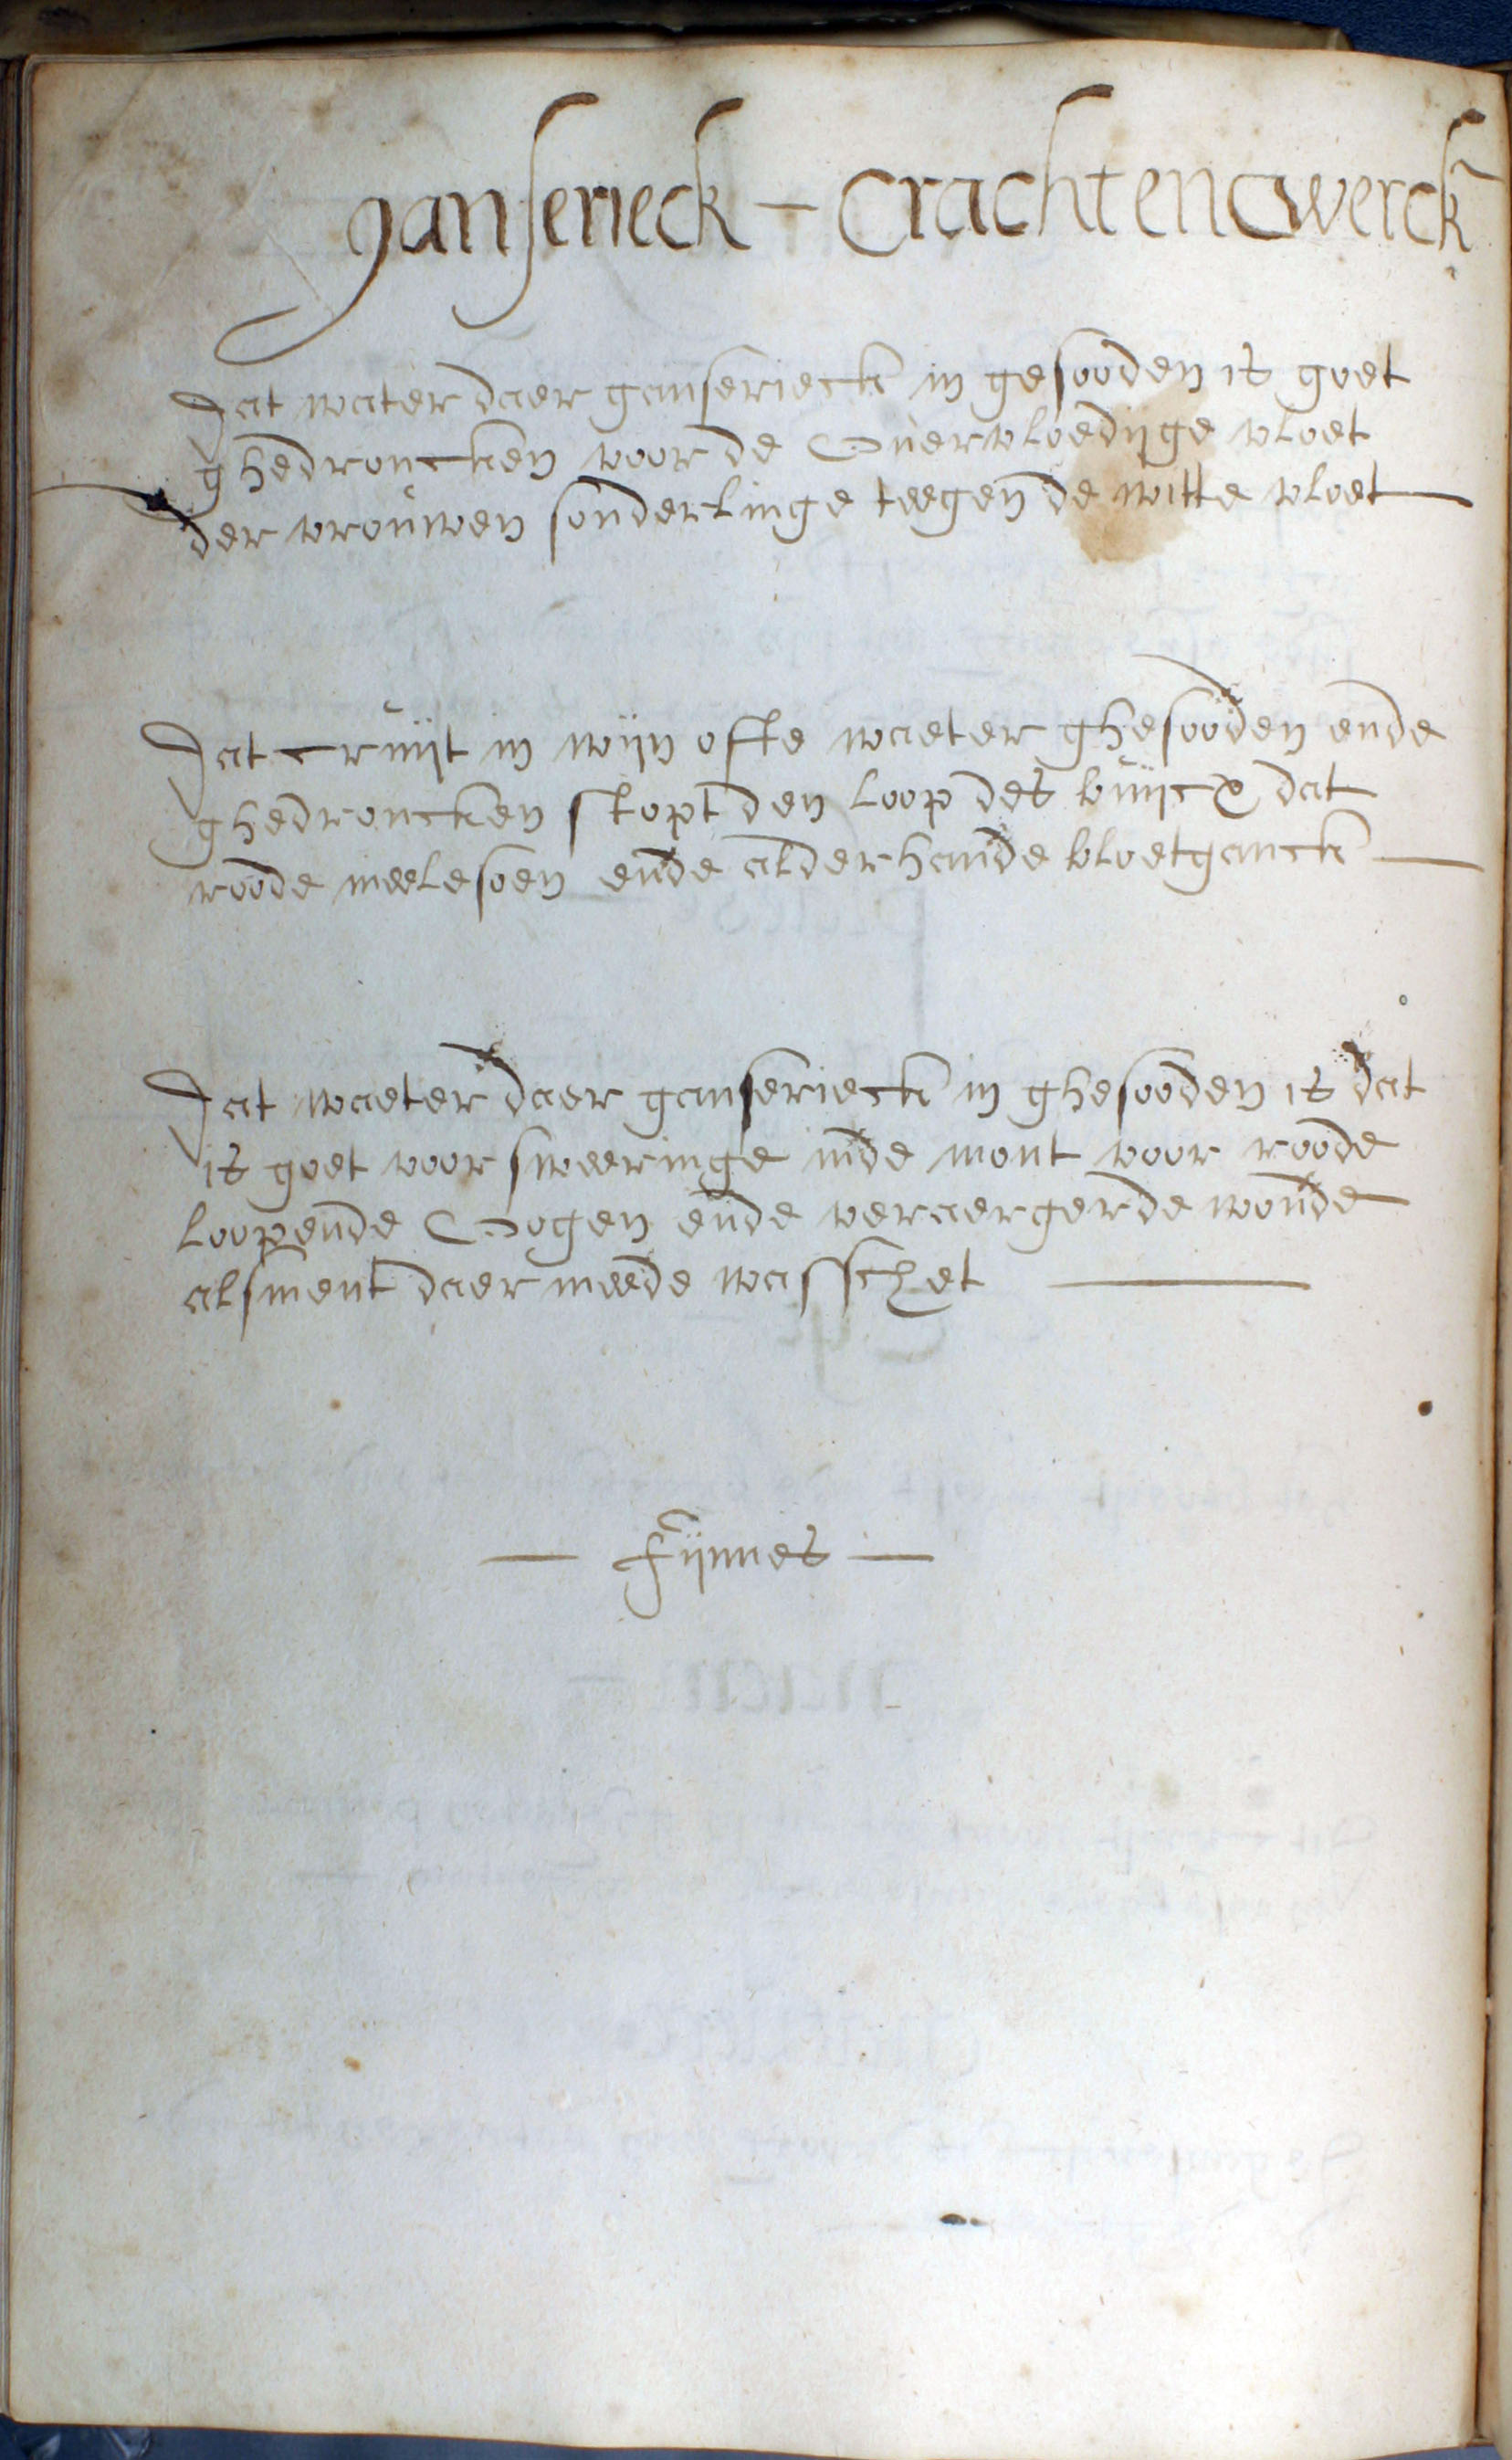 ganserieck - Crachtenwerck
Dat water daer ganserieck in gesooden is goet
ghedroncken voor de Ouervloedijge vloet
der vrouwen sonderlinge teegen de witte vloet
Dat cruijt in wijn ofte waeter ghesooden ende
ghedroncken stopt den loop des buijcx dat
roode meelesoen ende alderhande bloetganck
Dat waeter daer ganserieck in ghesooden is dat
is goet voor sweeringe inde mont voor roode
loopende Oogen ende verargerde wonde
alsment daer meede wasschet
— Fijnnes —